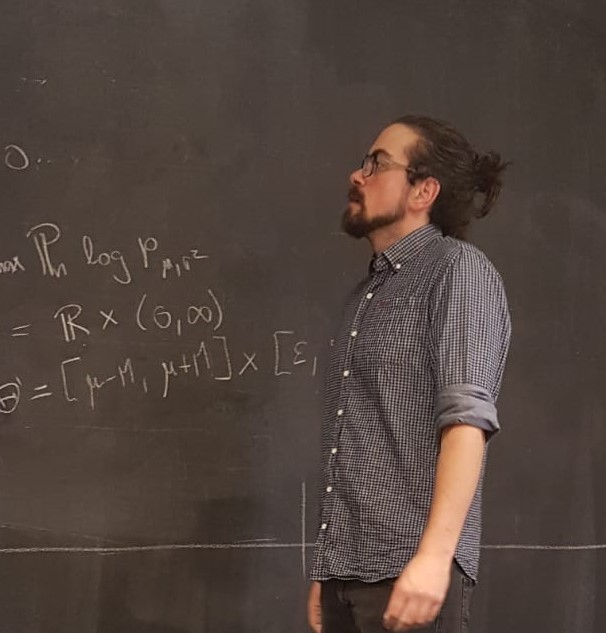 0...
max ℙₙ log p_{μ,σ²}
= ℝ × (0,∞)
Θ' = [μ-M, μ+M] × [ε,